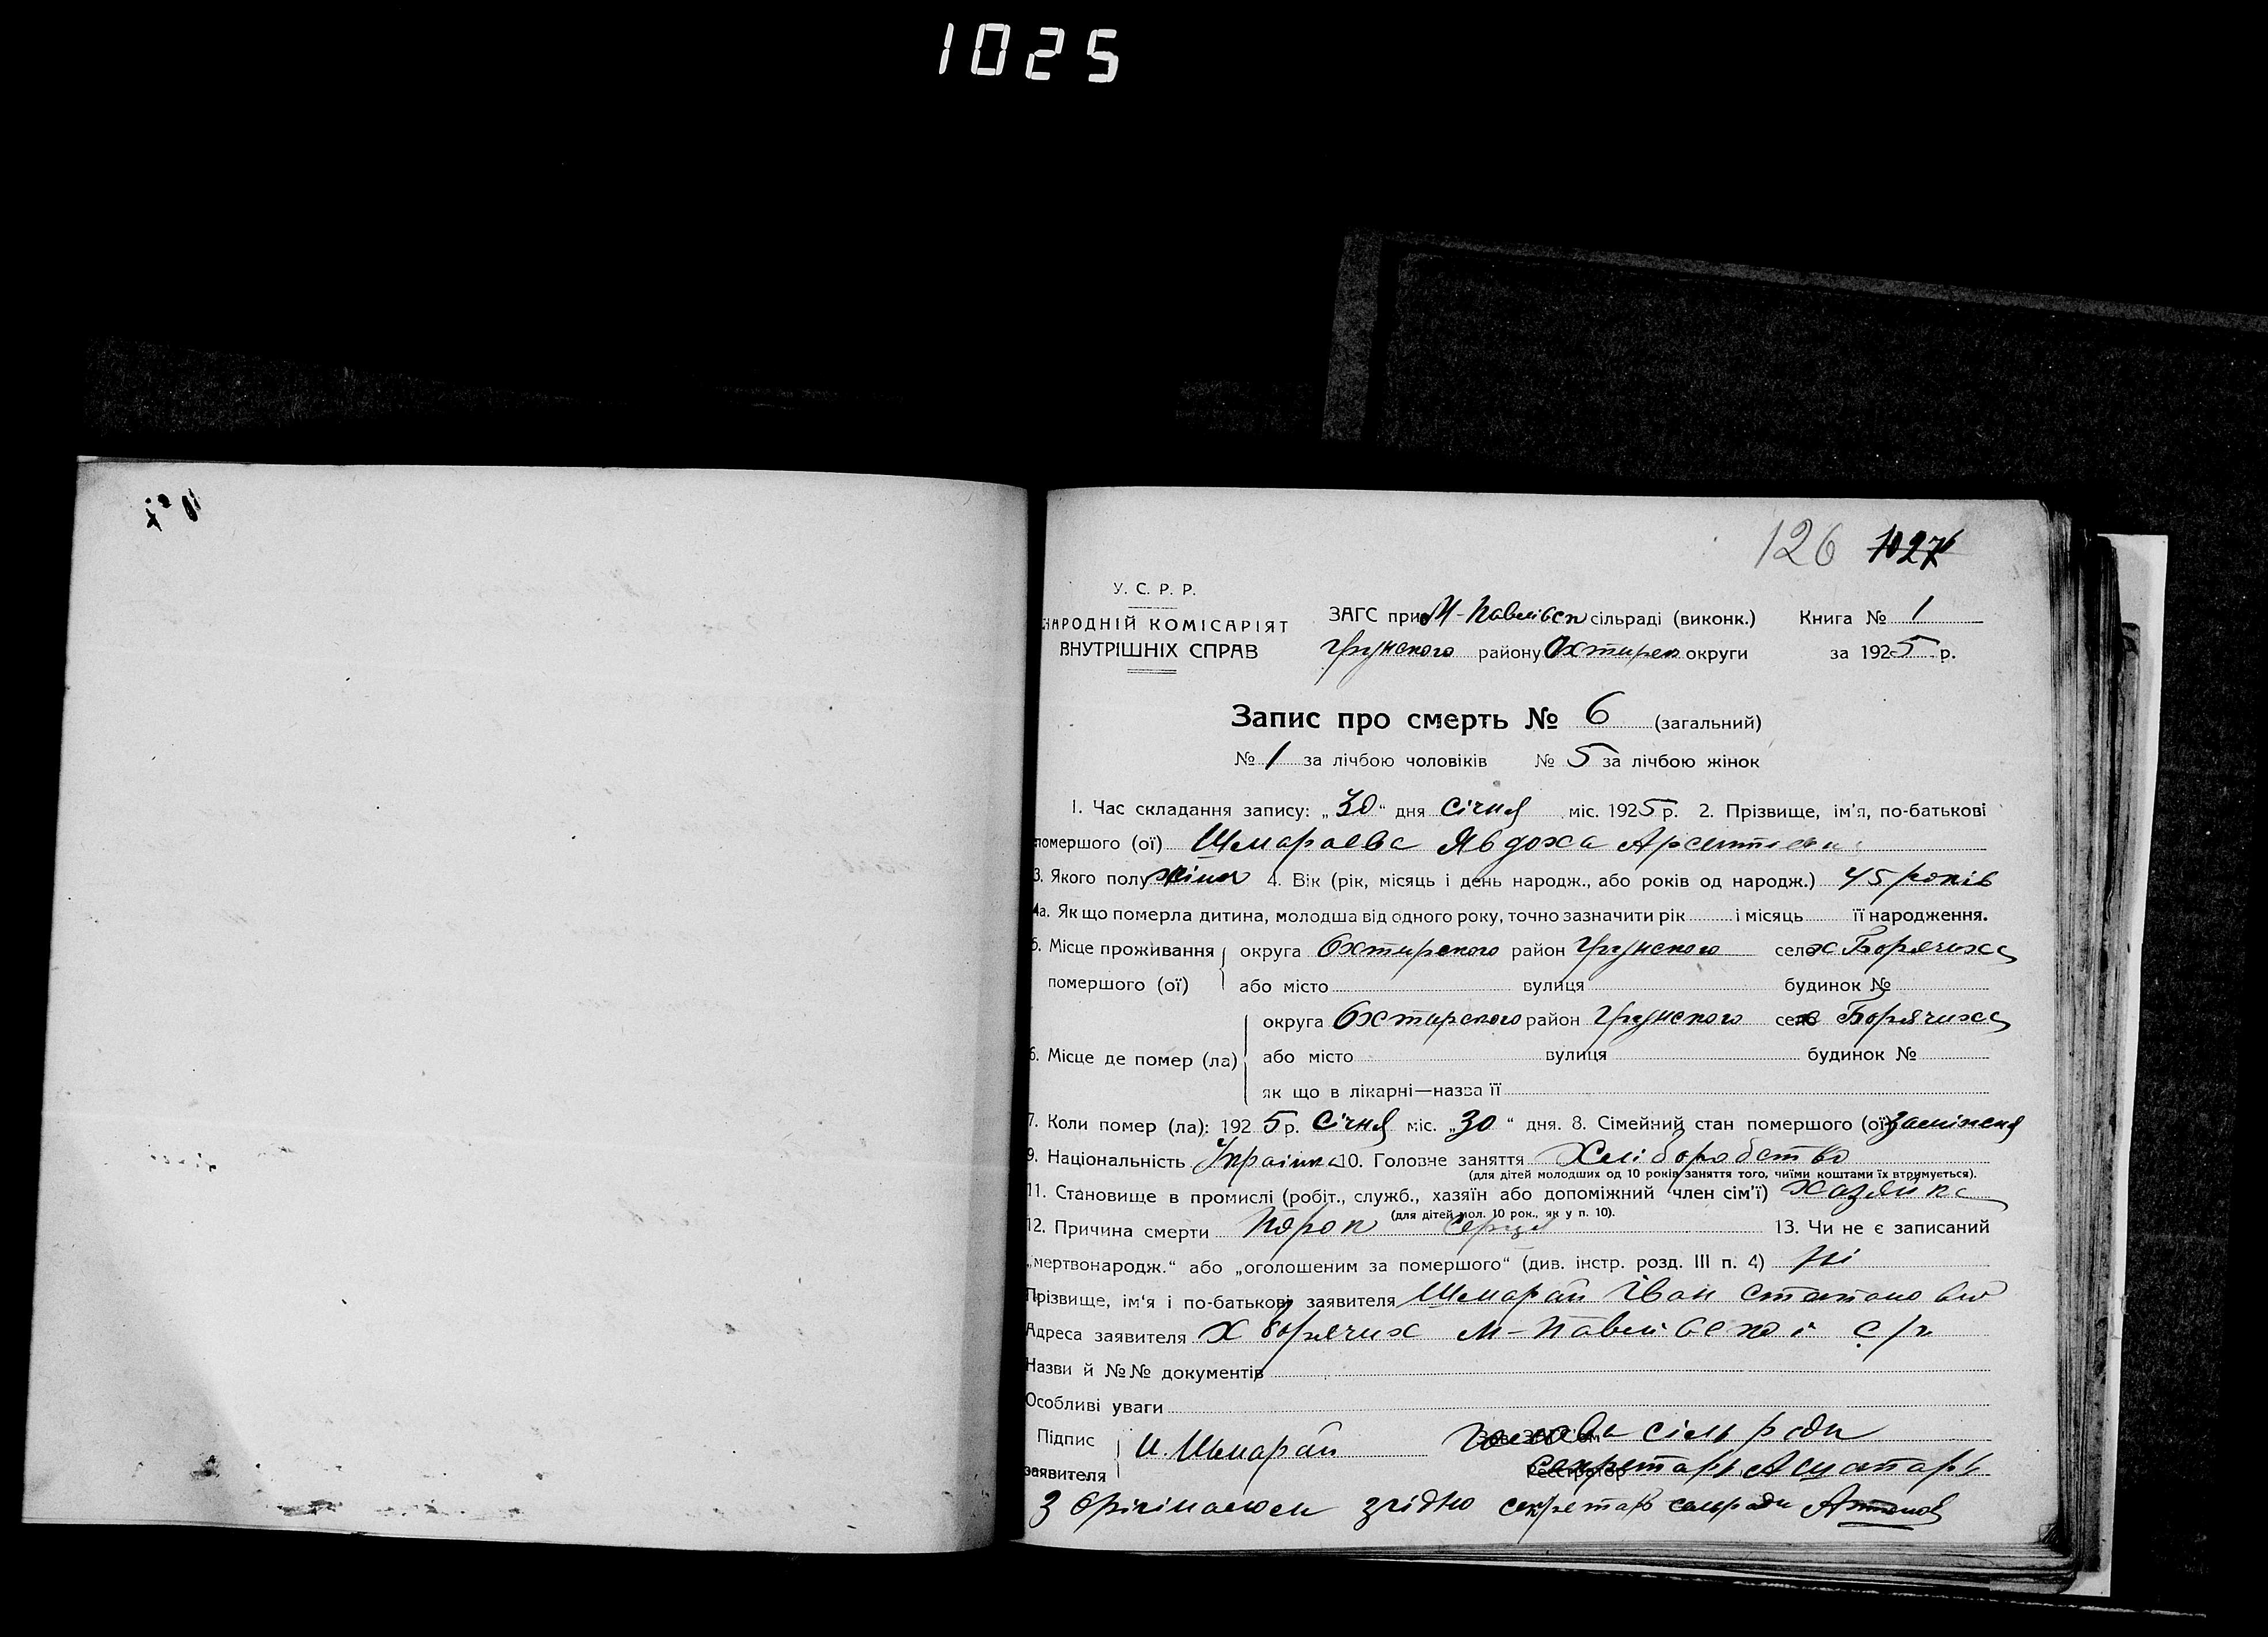 1025
126 1027
У. С. Р. Р.
НАРОДНІЙ КОМІСАРІЯТ
ВНУТРІШНІХ СПРАВ
ЗАГС при М-Павлівск сільраді (виконк.) Книга № 1
Грунского району Охтирск округи за 1925 р.
Запис про смерть № 6 (загальний)
№ 1 за лічбою чоловіків № 5 за лічбою жінок
1. Час складання запису: „30“ дня січня міс. 1925 р. 2. Прізвище, ім'я, по-батькові
помершого (ої) Шмараєва Явдоха
3. Якого полу жіноч 4. Вік (рік, місяць і день народж., або років од народж.) 45 років
4а. Як що померла дитина, молодша від одного року, точно зазначити рік і місяць її народження.
5. Місце проживання округа Охтирского район Грунского село х Борячиха
помершого (ої) або місто вулиця будинок №
округа Охтирского район Грунского село Борячиха
6. Місце де помер (ла) або місто вулиця будинок №
як що в лікарні—назва її
7. Коли помер (ла): 1925 р. Січня міс. „30“ дня. 8. Сімейний стан помершого (ої) заміжня
9. Національність Українка 10. Головне заняття Хліборобство
(для дітей молодших од 10 років заняття того, чиїми коштами їх втримується).
11. Становище в промислі (робіт., служб., хазяїн або допоміжний член сім'ї) хазяйка
(для дітей мол. 10 рок., як у п. 10).
12. Причина смерти Порок серця 13. Чи не є записаний
„мертвонародж.“ або „оголошеним за помершого“ (див. інстр. розд. III п. 4) Ні
Прізвище, ім'я і по-батькові заявителя Шмарай Іван
Адреса заявителя х Борячих М-Павлівскоі с/р
Назви й №№ документів
Особливі уваги
Підпис
заявителя И. Шмарай Голова сільради
Реєстратор Секретарь
З орігіналом згідно секретарь сельради